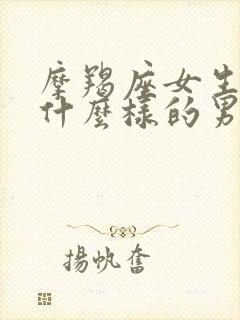 摩羯座女生
什麼樣的男
揚帆奮